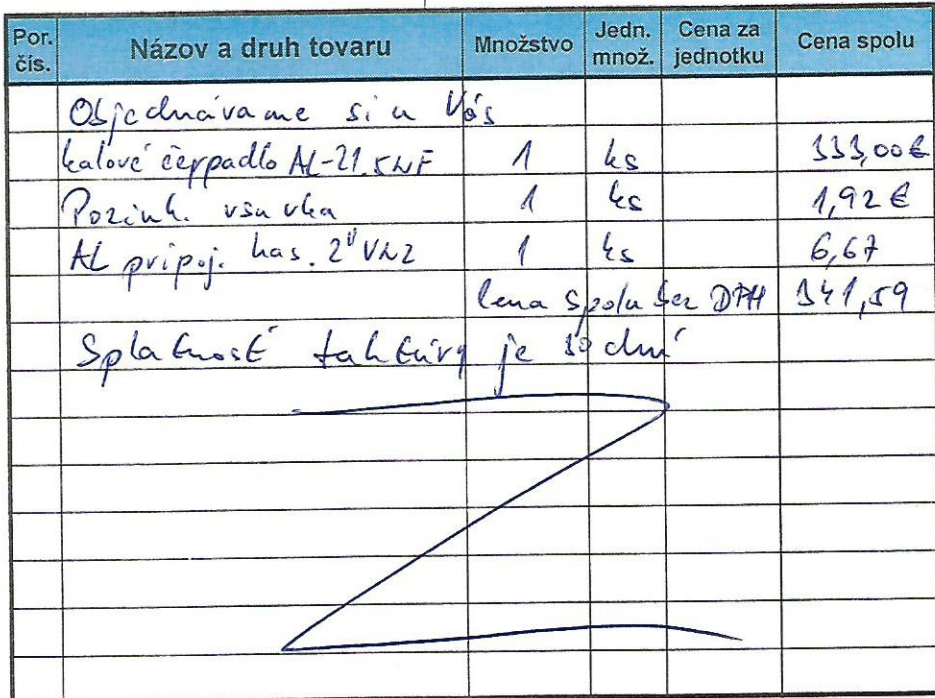 Por. čís. Názov a druh tovaru Množstvo Jedn. množ. Cena za jednotku Cena spolu
Objednávame si u Vás
kalové čerppadlo AL-21.5NF 1 ks 333,00€
Pozink. vsuvka 1 ks 1,92 €
AL pripoj. has. 2" 1 ks 6,67
Cena spolu bez DPH 341,59
Splatnosť faktúry je 30 dní